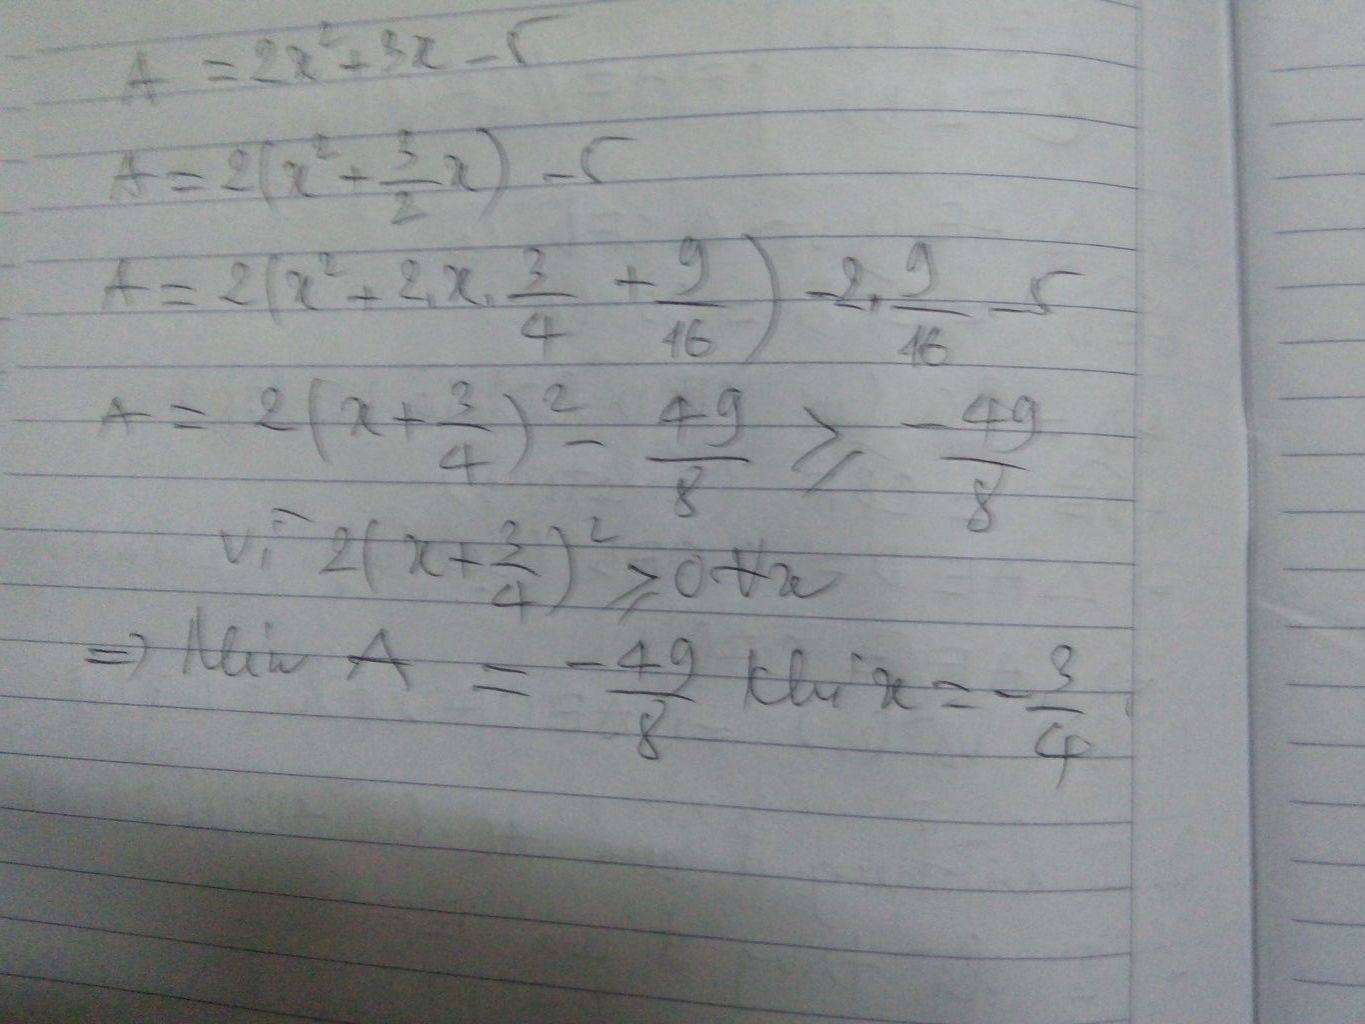 A = 2x² + 3x - 5
A = 2(x² + 3/2 x) - 5
A = 2(x² + 2.x.3/4 + 9/16) - 2.9/16 - 5
A = 2(x + 3/4)² - 49/8 ⩾ -49/8
Vì 2(x + 3/4)² ⩾ 0 ∀x
=> Min A = -49/8 khi x = -3/4